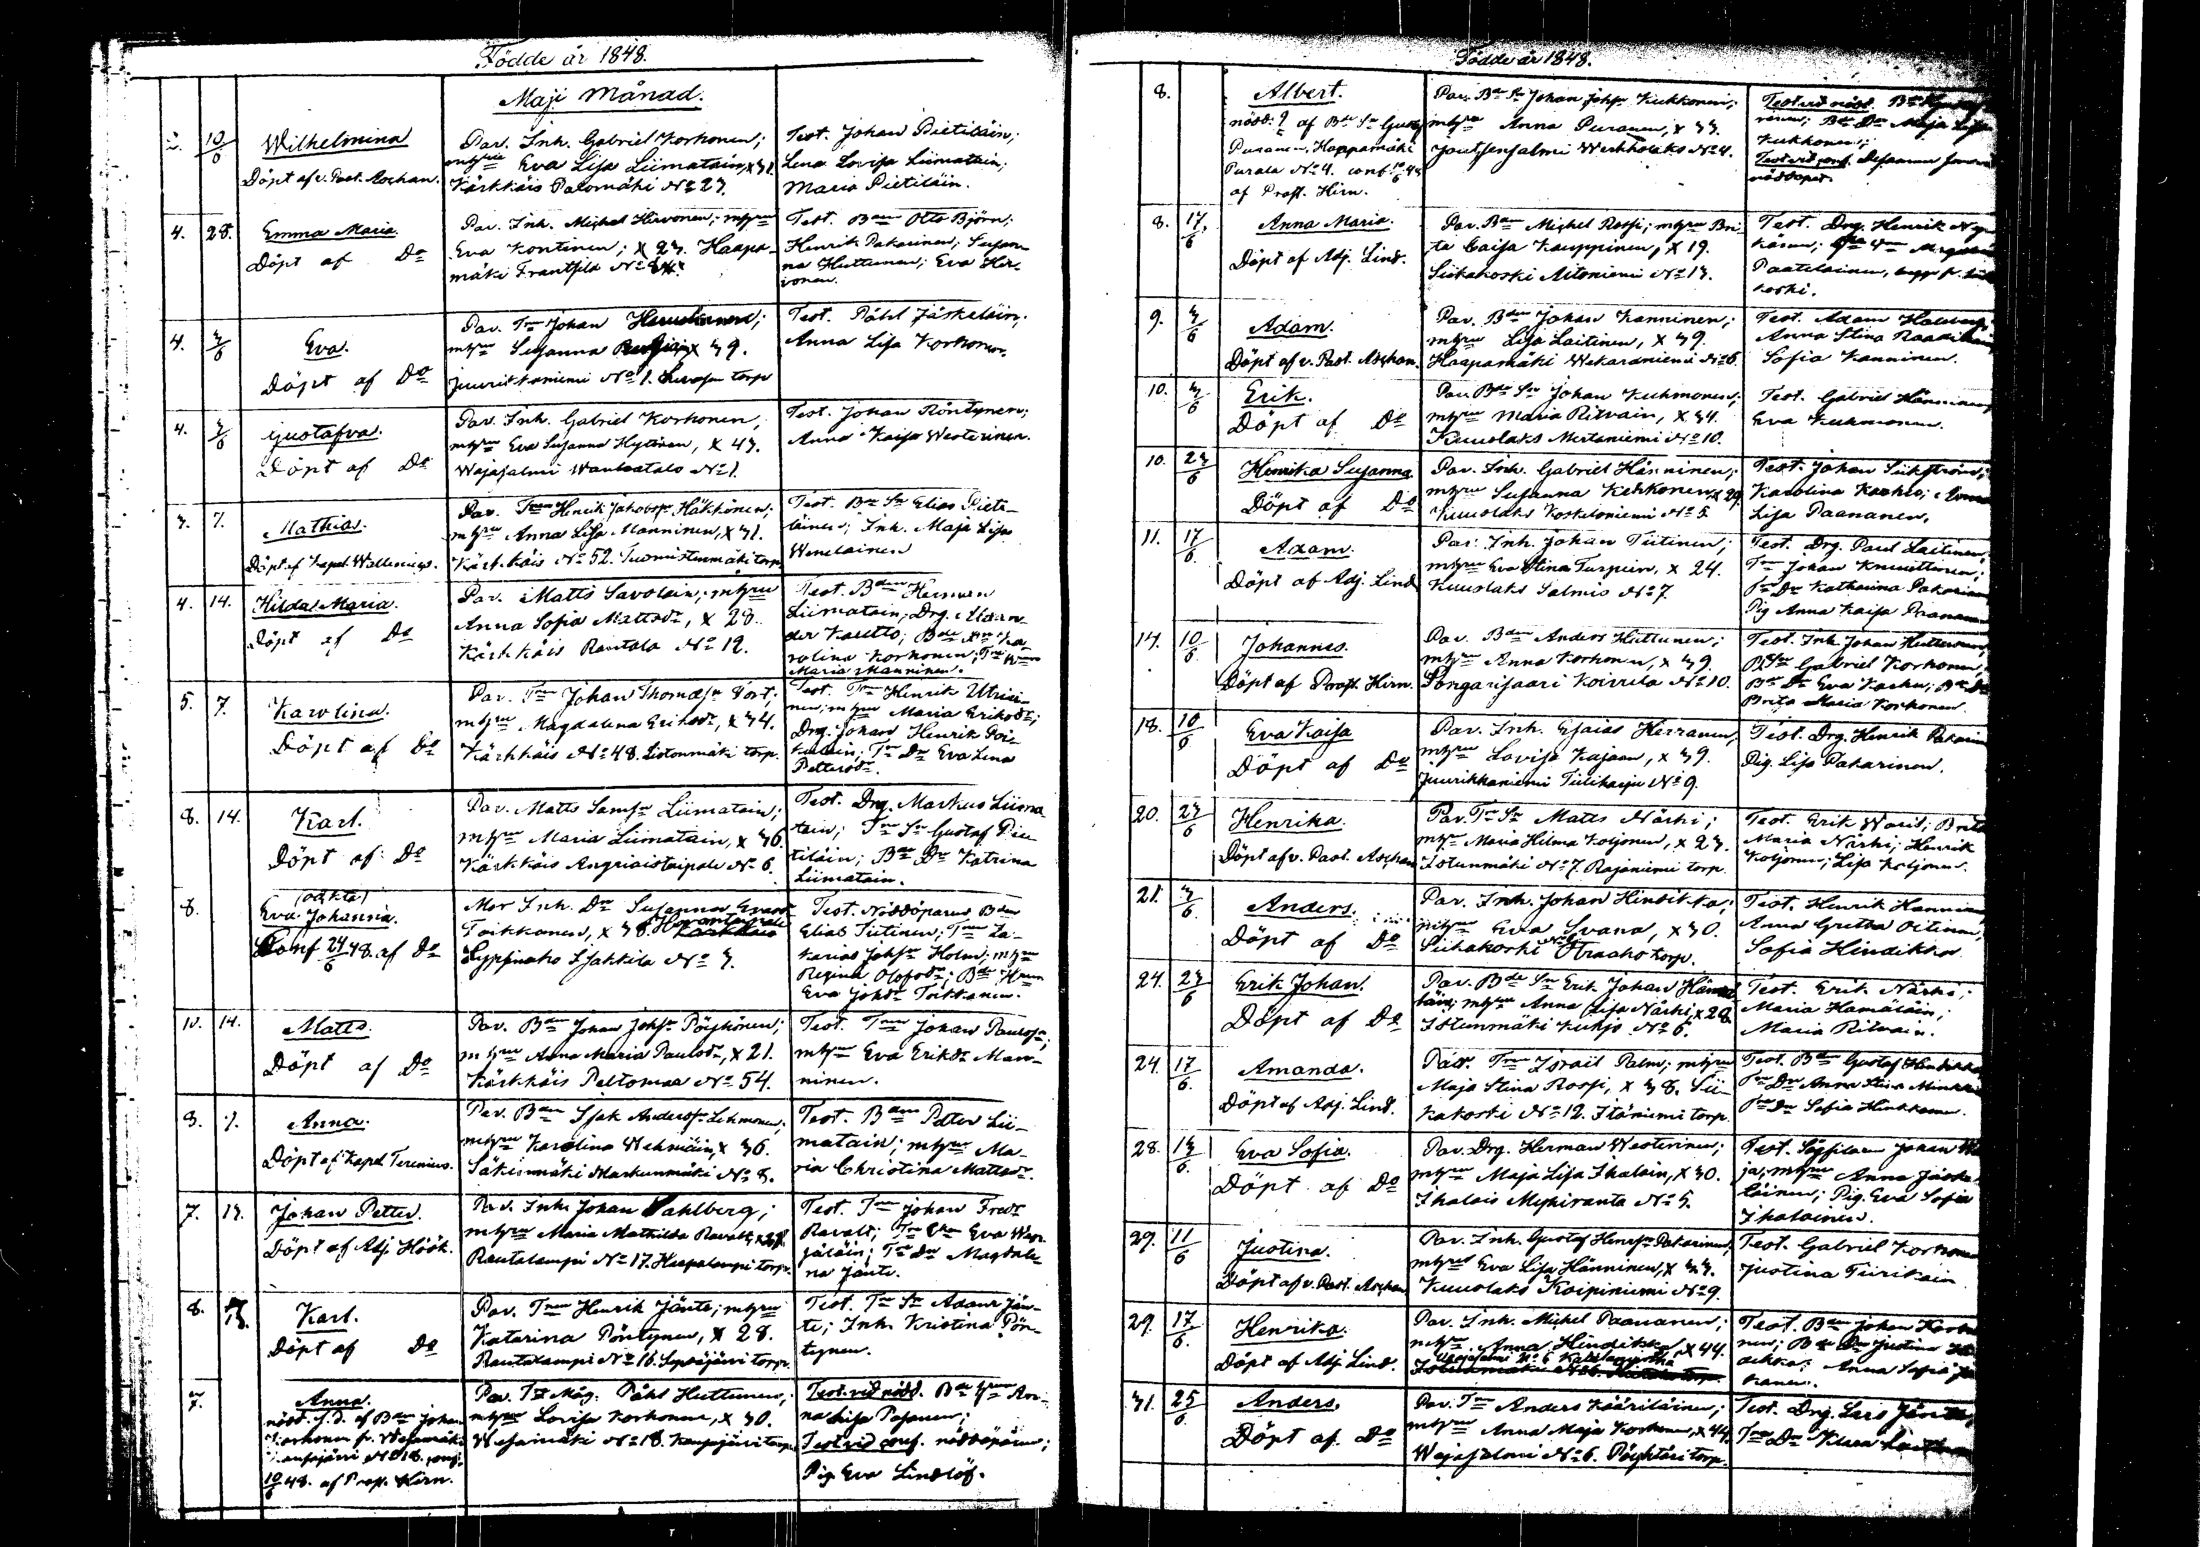 Födde år 1848.
Maji Månad.
10/6
Wilhelmina
Döpt af v. Past. Aschan.
Par. Inh. Gabriel Korhonen;
Eva Lisa Liimatain, x 31.
Kärkkäis Palomäki No 27.
Test. Johan Pietiläin;
Lena Lovisa Liimatain;
Maria Pietiläin.
4. 28.
Emma Maria.
Döpt af Do
Par. Inh. Michel Hirvonen; mhrun
Eva Kontinen; x 27. Haapa-
mäki Frantsila
Test. Bden Otto Björn;
Henrik Pakarinen; Susan-
na Huttunen; Eva Hir-
vonen.
4. 3/6
Eva.
Döpt af Do
Par. Tn Johan
mhrun Susanna x 39.
Juurikkaniemi No 1. torp
Test. Påhl Jäskeläin;
Anna Lisa Korhonen.
4. 3/6
Gustafva.
Döpt af Do
Par. Inh. Gabriel Korhonen,
mhrun Eva Susanna Hytönen, x 43.
Wajasalmi No 1.
Test. Johan Röntynen;
Anna Kaisa Westerinen.
3. 7.
Mathias.
Döpt af Kapel. Wallenius.
Par. Tnen Henrik Jakobsn Häkkinen;
mhrn Anna Lisa Manninen, x 31.
Kärkkäis No 52. torp
Test. Bde Sn Elias Pieti-
läinen; Inh. Maja Lisa
Wenelainen
4. 14.
Hilda Maria.
Döpt af Do
Par. Matts Savolain; mhrun
Anna Sofia Mattsdr, x 28.
Kärkkäis Rantala No 12.
Test. Bden Herman
Liimatain; Drg. Alexan-
der Kautto; Bde Ka-
rolina Korhonen;
Maria Manninen.
5. 7.
Karolina.
Döpt af Do
Par. Tn Johan Thomasn Tost;
mhrun Magdalena Eriksdr, x 34.
Kärkkäis No 48. Listonmäki torp.
Test. Tn Henrik Utriai-
nen; mhrn Maria Eriksdr;
Drg. Johan Henrik Poi-
kulain; Tn Dr Eva Lena
Pettersdr.
8. 14.
Karl.
Döpt af Do
Par. Matts Samsn Liimatain;
mhrun Maria Liimatain, x 36.
Kärkkäis Angriaistaipale No 6.
Test. Drg. Markus Liima
tain; Tn Sn Gustaf Pie
tiläin; Bde Dr Katrina
Liimatain.
8.
(oäkta)
Eva Johanna.
Conf 24/6 48. af Do
Mor Inh. Dr Susanna
Toikkanen, x 38.
No 3.
Test. Nöddöparen Bden
Elias Tiitinen; Tnen Za-
karias Johsn Holm; mhrn
Regina Olofsdr;
Eva Johdr Toikkanen.
10. 14.
Matts.
Döpt af Do
Par. Bden Johan Johsn Pöyhönen;
mhrun Anna Maria Paulsdr, x 21.
Kärkkäis Peltomaa No 54.
Test. Tnen Johan Paulsn;
mhrun Eva Eriksdr Man-
ninen.
3. 7.
Anna.
Döpt af Kapel Terenius.
Par. Bden Isak Andersn Lehmonen;
mhrun Karolina Wehniäin, x 36.
Säkinmäki Markunmäki No 8.
Test. Bden Petter Lii-
matain; mhrun Ma-
ria Christina Mattsdr.
7. 13.
Johan Petter.
Döpt af Adj. Höök.
Par. Inh. Johan Vahlberg;
mhrun Maria Mathilda
Rautalampi No 17. Haapalampi torp.
Test. Tnen Johan Fredr
Eva
jäläin; Tn Dr Magdale-
na Jänti.
8.
Karl.
Döpt af Do
Par. Tnen Henrik Jänti; mhrun
Katarina Pöntynen, x 28.
Rautalampi No 16. torp.
Test. Tn Sn Adam Jän-
ti; Inh. Kristina Pön-
tynen.
Anna.
nödd. af Bden Johan
Korhonen fr. Wesamäki
No 18. conf.
10/6 48. af Prost. Hirn.
Par. Måg. Påhl Huttunen;
mhrun Lovisa Korhonen, x 30.
Wesamäki No 18. torp.
Test. vid nödd. An-
na Lisa Pajanen;
Test. vid conf. nöddöparen;
Pig. Eva Lindlöf.
Födde år 1848.
8.
Albert.
nödd. af Bde Sn Gustaf
Puranen, Happamäki
Purala No 4. conf. 10/6 48
af Prost. Hirn.
Par. Bde Sn Johan Johsn Kukkonen;
mhrun Anna Puranen, x 33.
Joutsensalmi No 4.
Test. vid nödd.
Bde Dr Maja Lisa
Kukkonen;
Test. vid conf.
nöddöpet.
8. 17/6
Anna Maria.
Döpt af Adj. Lind.
Par. Bden Michel Rossi; mhrun Bri-
ta Caisa Kauppinen, x 19.
Siikakoski Aitoniemi No 13.
Test. Drg. Henrik
Paatelainen,
koski.
9. 3/6
Adam.
Döpt af v. Past. Aschan.
Par. Bden Johan Kanninen;
mhrun Lisa Laitinen, x 39.
Haapamäki Wekaraniemi No 6.
Test. Adam
Anna Stina
Sofia Kanninen.
10. 3/6
Erik.
Döpt af Do
Par. Bde Sn Johan Kuhmonen;
mhrun Maria Ritvain, x 34.
Kuuslaks Mertaniemi No 10.
Test. Gabriel Hänninen
Eva Kuhmonen.
10. 23/6
Henrika Susanna
Döpt af Do
Par. Inh. Gabriel Hänninen;
mhrun Susanna Kekkonen, x 29.
Kuuslaks Koskeloniemi No 5.
Test. Johan
Karolina
Lisa Paananen.
11. 17/6
Adam.
Döpt af Adj. Lind
Par. Inh. Johan Tiitinen;
mhrun Eva Stina Turpein, x 24.
Kuuslaks Salmis No 7
Test. Drg. Paul Laitinen
Tn Johan Knuuttinen;
Dr Katharina Pakarinen
Pig Anna Kaisa
14. 10/6
Johannes.
Döpt af Prost. Hirn.
Par. Bden Anders Huttunen;
mhrun Anna Korhonen, x 39.
Songarisaari Koirrila No 10.
Test. Inh. Johan Huttunen,
Gabriel Korhonen,
Bde Dr Eva
Brita Maria Korhonen.
18. 10/6
Eva Kaisa
Döpt af Do
Par. Inh. Esaias Herranen,
mhrun Lovisa Kajaan, x 39.
Juurikkaniemi Tiilikarju No 9.
Test. Drg. Henrik Pakarinen
Pig. Lisa Pakarinen.
20. 23/6
Henrika.
Döpt af v. Past. Aschan
Par. Tn Sn Matts Närhi;
mhrn Maria Hilma Koljonen, x 23.
Istunmäki No 7. Rajaniemi torp.
Test. Erik Waris; Brita
Maria Närhi; Henrik
Koljonen; Lisa Koljonen.
21. 3/6
Anders.
Döpt af Do
Par. Inh. Johan Hindikka;
mhrun Eva Svana, x 30.
Siikakoski torp.
Test. Henrik
Anna Gretha Oitinen,
Sofia Hindikka
24. 23/6
Erik Johan.
Döpt af Do
Par. Bde Sn Erik Johan Hämä-
läin; mhrun Anna Lisa Närhi, x 28.
Istunmäki No 6.
Test. Erik Närhi;
Maria Hamäläin;
Maria Ritvain.
24. 17/6
Amanda.
Döpt af Adj. Lind.
Par. Tnen Israil Palm; mhrun
Maja Stina Rossi, x 38. Sii-
kakoski No 12. Itäniemi torp.
Test. Bden Gustaf
Tn Dr Anna Stina
Dr Sofia
28. 13/6
Eva Sofia.
Döpt af Do
Par. Drg. Herman Westerinen;
mhrun Maja Lisa Ihalain, x 30.
Ihalais Myhiranta No 5.
Test. Johan
mhrun Anna Jäske-
läinen; Pig. Eva Sofia
Ihalainen.
29. 11/6
Justina.
Döpt af v. Past. Aschan
Par. Inh. Gustaf Henrsn Pakarinen,
mhrun Eva Lisa Hänninen, x 33.
Kuuslaks Koipiniemi No 9.
Test. Gabriel Korhonen
Justina Tiirikain
29. 17/6
Henrika.
Döpt af Adj. Lind.
Par. Inh. Michel Paananen;
mhrun Anna Hindikka, x 44.
Test. Bden Johan
Justina
Anna Sofia
31. 25/6
Anders.
Döpt af Do
Par. Tn Anders Kääriläinen;
mhrun Anna Maja Korhonen, x 44.
Wajasalmi No 6. torp.
Test. Drg. Lars Jänti,
Tn Dr Klara